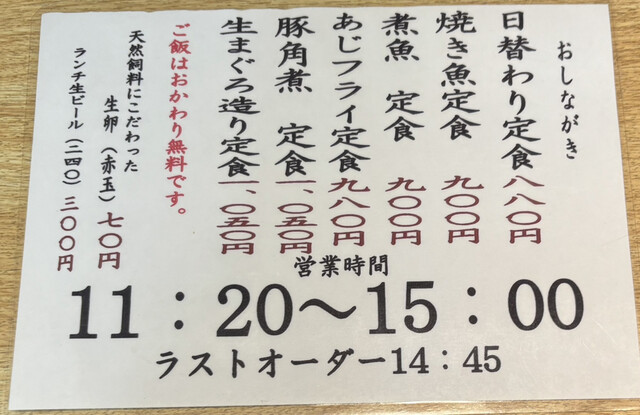 おしながき
日替わり定食 八八〇円
焼き魚定食 九〇〇円
煮魚 定食 九〇〇円
あじフライ定食 九八〇円
豚角煮 定食 一、〇五〇円
生まぐろ造り定食 一、〇五〇円
ご飯はおかわり無料です。
天然飼料にこだわった
生卵（赤玉）七〇円
ランチ生ビール（二四〇）三〇〇円
営業時間
11：20～15：00
ラストオーダー14：45